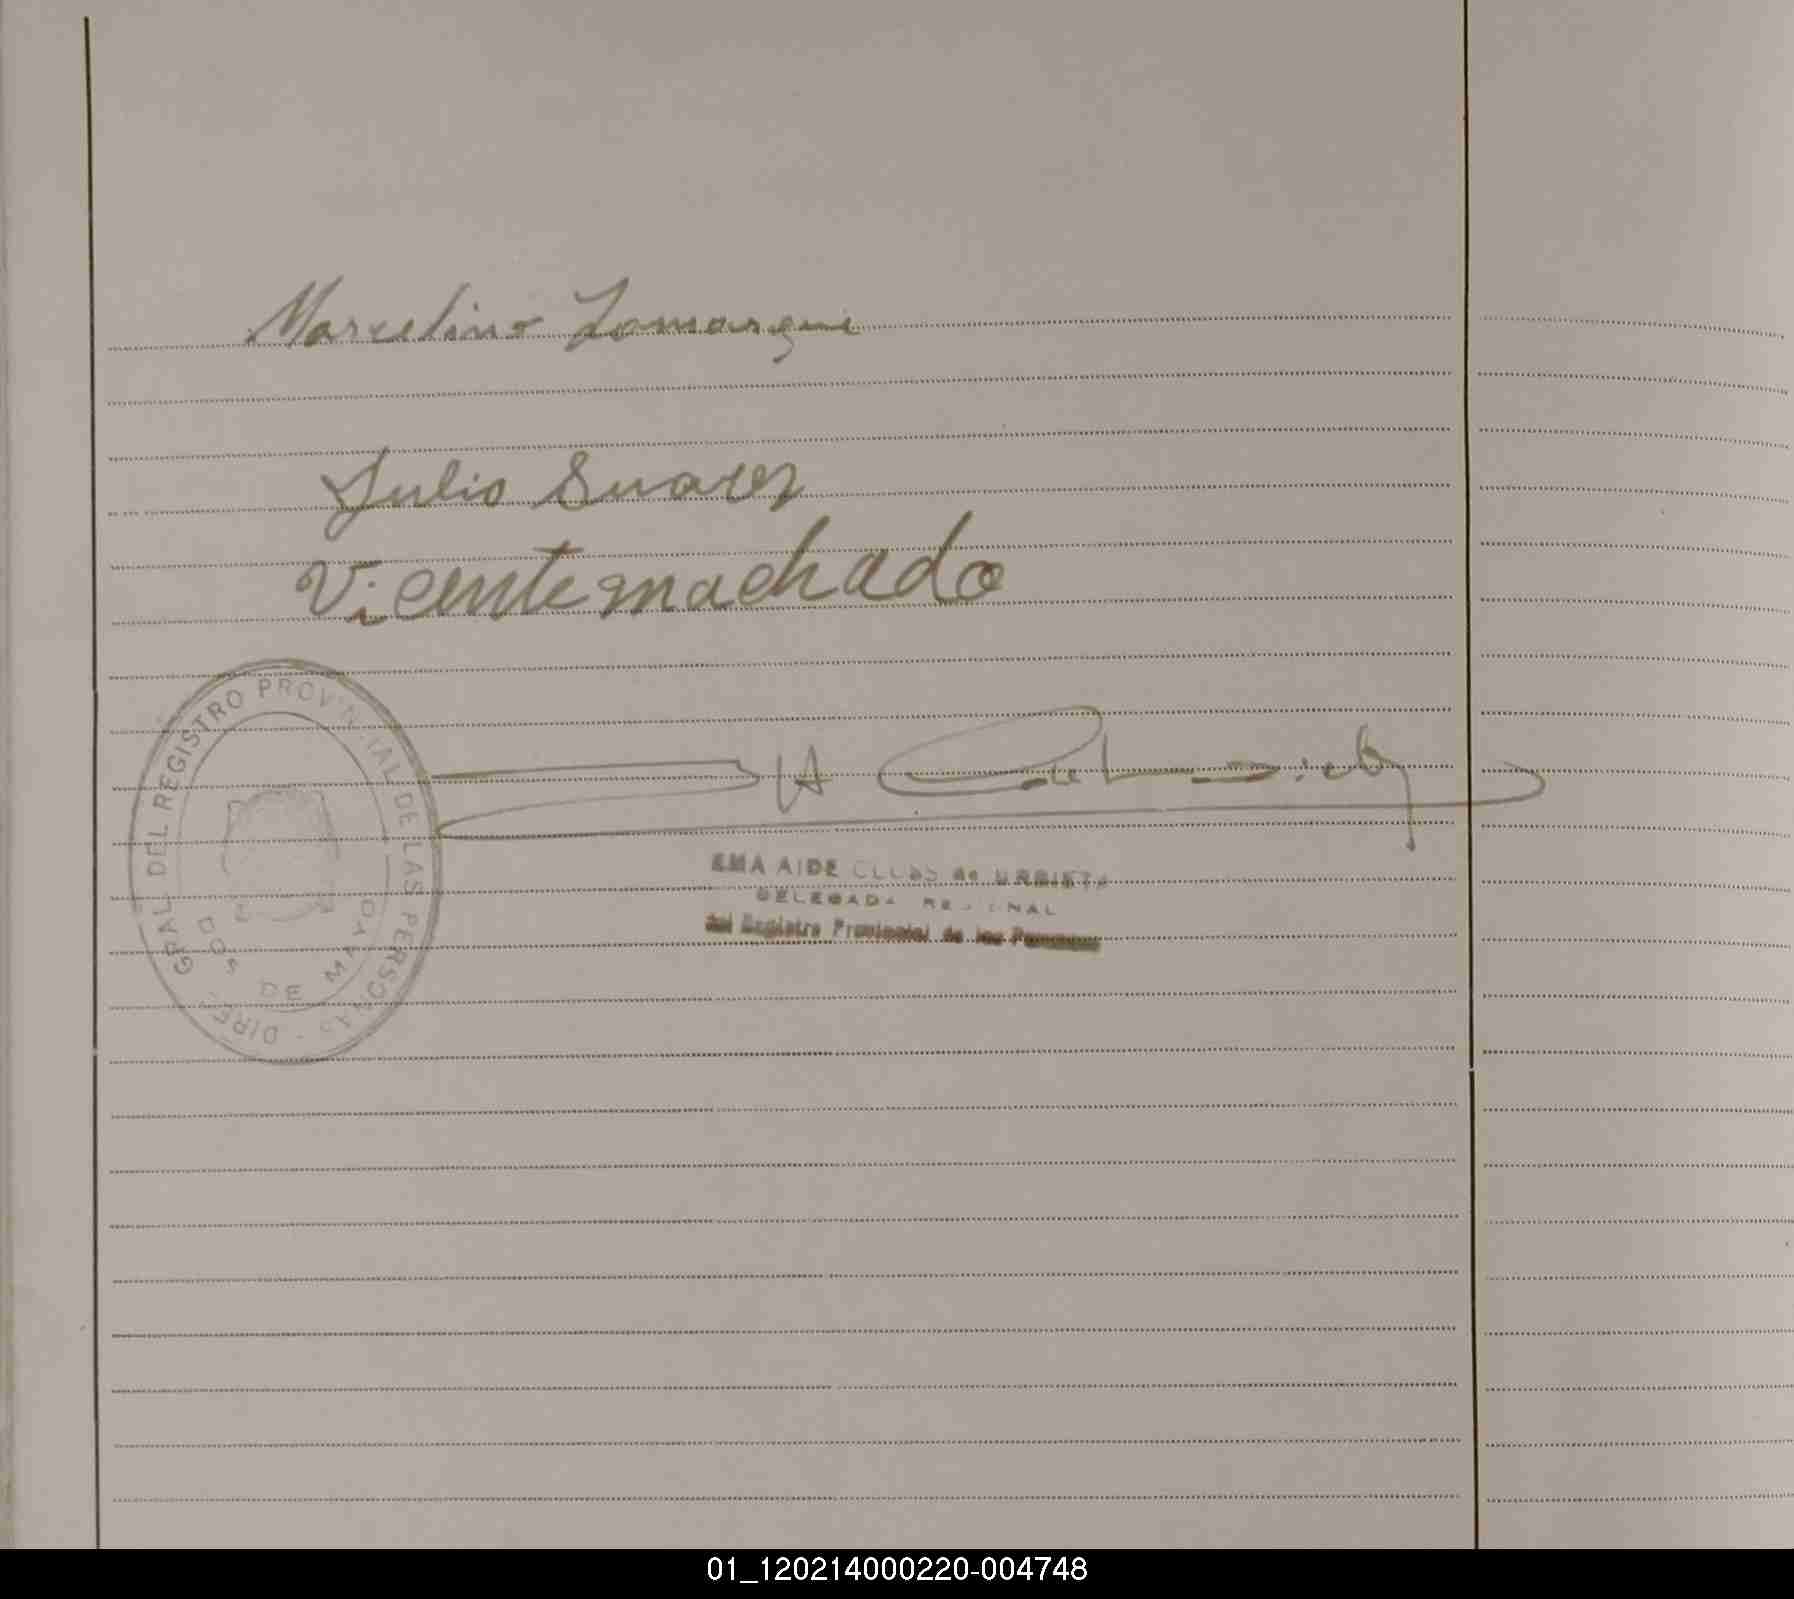 Marcelino Lamarque
Julio Suarez
Vicente machado
DIREC. GRAL. DEL REGISTRO PROVINCIAL DE LAS PERSONAS -
DOS DE MAYO
EMA AIDE de URBIETA
DELEGADA REGIONAL
del Registro Provincial de las Personas
01_120214000220-004748